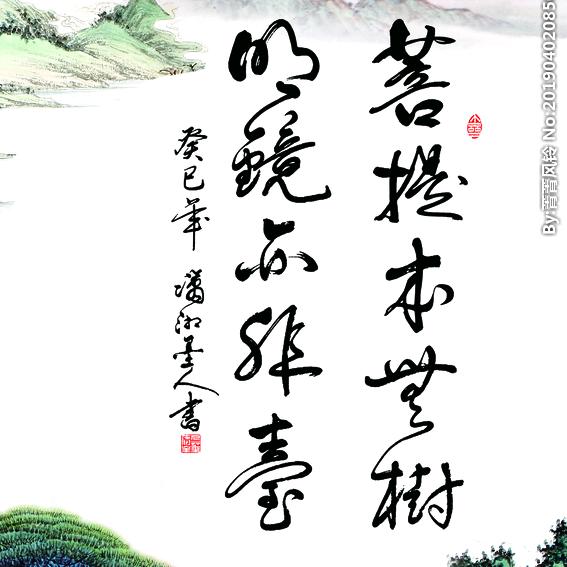 菩提本無樹
明鏡亦非臺
癸巳年 瀟湘墨人書
By:菁菁风铃 No.20190402085